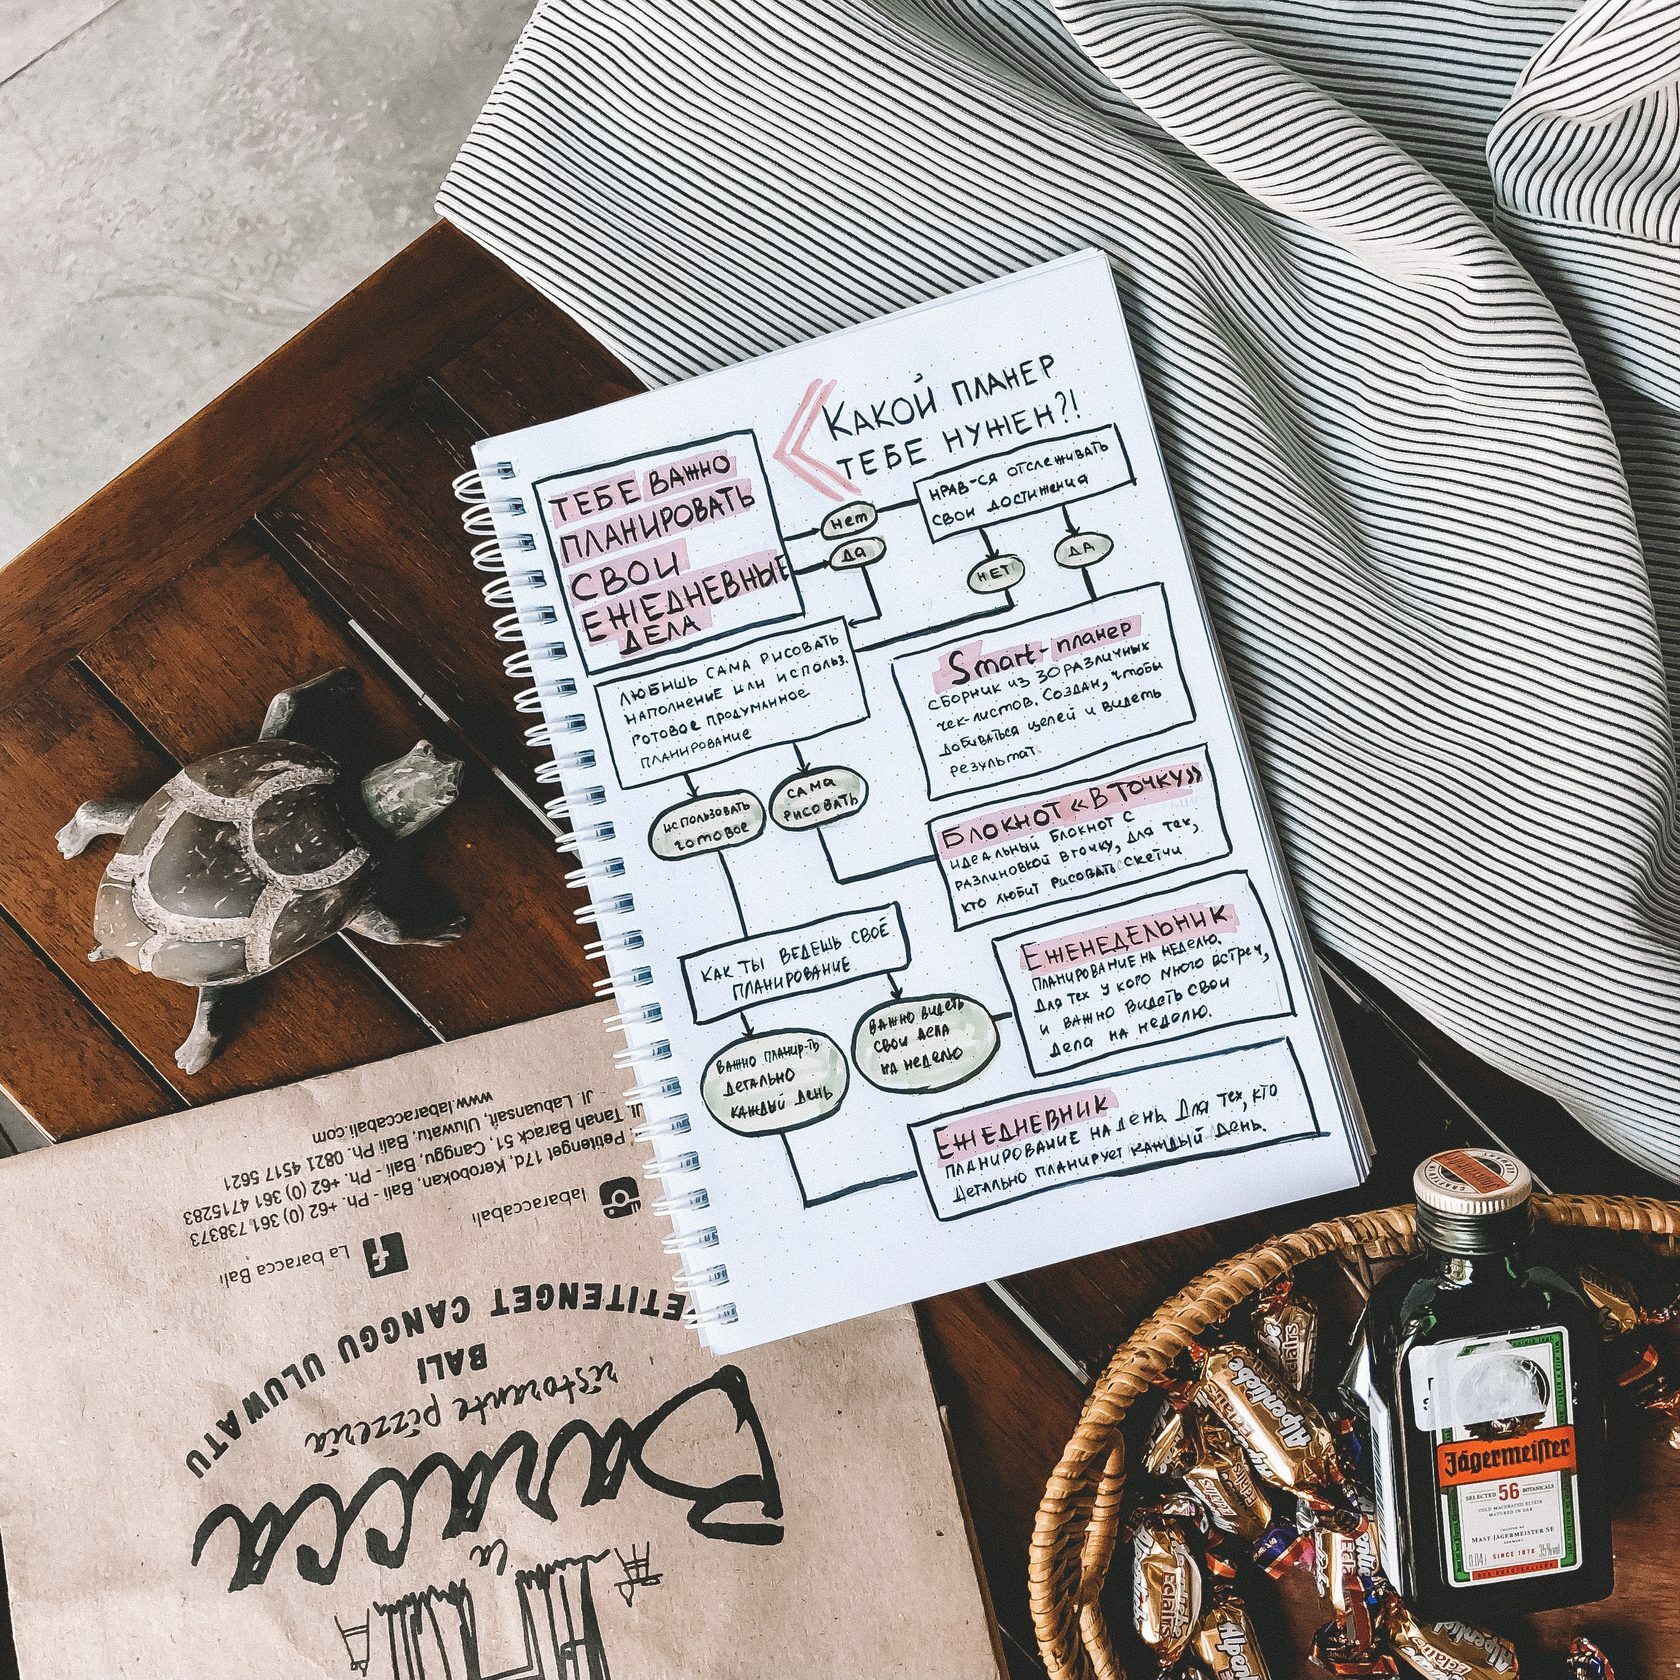 КАКОЙ ПЛАНЕР
ТЕБЕ НУЖЕН?!
ТЕБЕ ВАЖНО
ПЛАНИРОВАТЬ
СВОИ
ЕЖЕДНЕВНЫЕ
ДЕЛА
нет
да
НРАВ-СЯ ОТСЛЕЖИВАТЬ
СВОИ ДОСТИЖЕНИЯ
НЕТ
ДА
ЛЮБИШЬ САМА РИСОВАТЬ
НАПОЛНЕНИЕ ИЛИ ИСПОЛЬЗ.
ГОТОВОЕ ПРОДУМАННОЕ
ПЛАНИРОВАНИЕ
Smart-планер
СБОРНИК ИЗ 30 РАЗЛИЧНЫХ
чек-листов. Создан, чтобы
добиваться целей и видеть
результат.
использовать
готовое
сама
рисовать
БЛОКНОТ «В ТОЧКУ»
идеальный блокнот с
разлиновкой в точку, для тех,
кто любит рисовать скетчи
КАК ТЫ ВЕДЕШЬ СВОЁ
ПЛАНИРОВАНИЕ
ЕЖЕНЕДЕЛЬНИК
ПЛАНИРОВАНИЕ НА НЕДЕЛЮ.
Для тех у кого много встреч,
и важно видеть свои
дела на неделю.
ВАЖНО ПЛАНИР-ТЬ
ДЕТАЛЬНО
КАЖДЫЙ ДЕНЬ
ВАЖНО ВИДЕТЬ
СВОИ ДЕЛА
НА НЕДЕЛЮ
ЕЖЕДНЕВНИК
ПЛАНИРОВАНИЕ НА ДЕНЬ. Для тех, кто
детально планирует каждый день.
la
Baracca
ristorante pizzeria
BALI
PETITENGET CANGGU ULUWATU
La baracca Bali
labaraccabali
Petitenget 17d, Kerobokan, Bali - Ph. +62 (0) 361 738373
Jl. Tanah Barack 51, Canggu, Bali - Ph. +62 (0) 361 4715283
Jl. Labuansait, Uluwatu, Bali Ph. 0821 4517 5621
www.labaraccabali.com
Jägermeister
SELECTED 56 BOTANICALS
COLD-MACERATED ELIXIR
MATURED IN OAK
MAST-JÄGERMEISTER SE
SINCE 1878
0.04l
35%vol
Alpenliebe
Eclairs
Alpenliebe
Eclairs
Eclairs
Alpenliebe
Eclairs